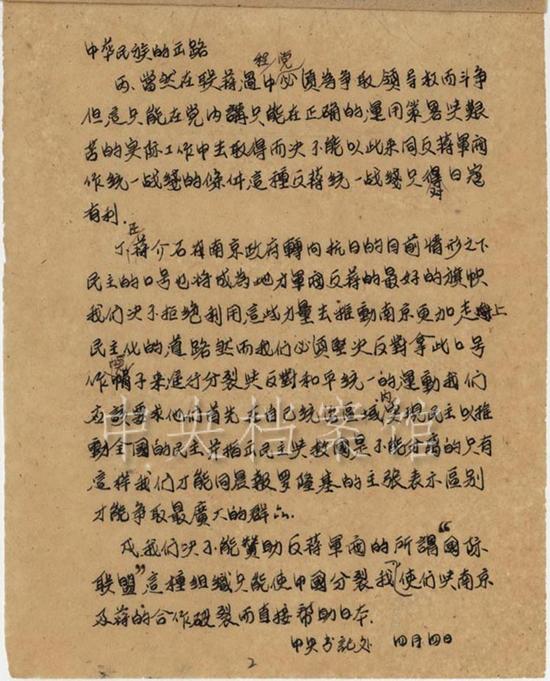 中华民族的出路
程 党
丙、當然在联蒋过中必須為爭取領导权而斗争
但这只能在党内講只能在正確的運用策畧与艱
苦的实际工作中去取得而决不能以此来同反蒋軍阀
作统一战綫的條件這種反蒋统一战綫只得日寇
对
有利.
正
丁、蒋介石与南京政府轉向抗日的目前情形之下
民主的口号也将成為地方軍阀反蒋的最好的旗帜
我们决不拒绝利用這些力量去推動南京更加走上
民主化的道路然而我们必須堅决反對拿此口号
作帽子来進行分裂与反對和平统一的運動我们
应該要求他们首先在自己统治區域内实現民主以推
動全國的民主并指出民主与救國是不能分离的只有
這样我们才能同晨報罗隆基的主張表示區别
才能争取最廣大的群众.
戊我们决不能贊助反蒋軍阀的所謂“國际
联盟”這種组織只能使中國分裂我使们与南京
及蒋的合作破裂而直接帮助日本.
中央书記处 四月四日
2
中央档案馆